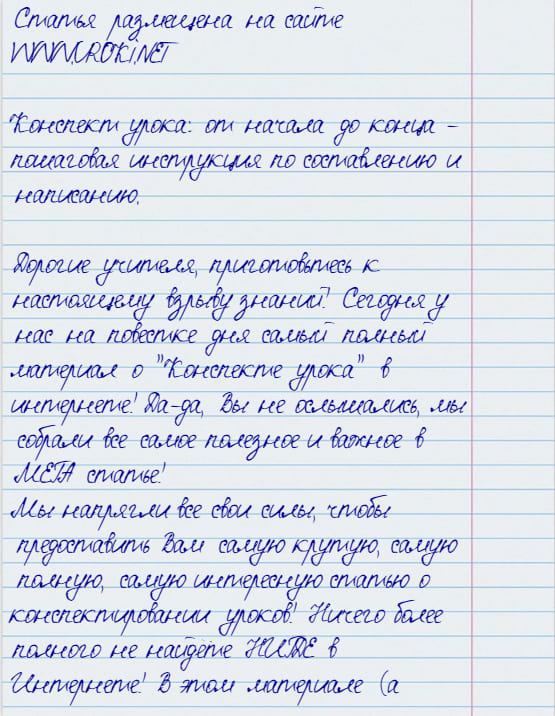 Статья размещена на сайте
WWW.UROKI.NET
Конспект урока: от начала до конца –
пошаговая инструкция по составлению и
написанию.
Дорогие учителя, приготовьтесь к
настоящему взрыву знаний! Сегодня у
нас на повестке дня самый полный
материал о "Конспекте урока" в
интернете! Да-да, Вы не ослышались, мы
собрали все самое полезное и важное в
МЕГА статье!
Мы напрягли все свои силы, чтобы
предоставить Вам самую крутую, самую
полную, самую интересную статью о
конспектировании уроков! Ничего более
полного не найдёте НИГДЕ в
Интернете! В этом материале (а